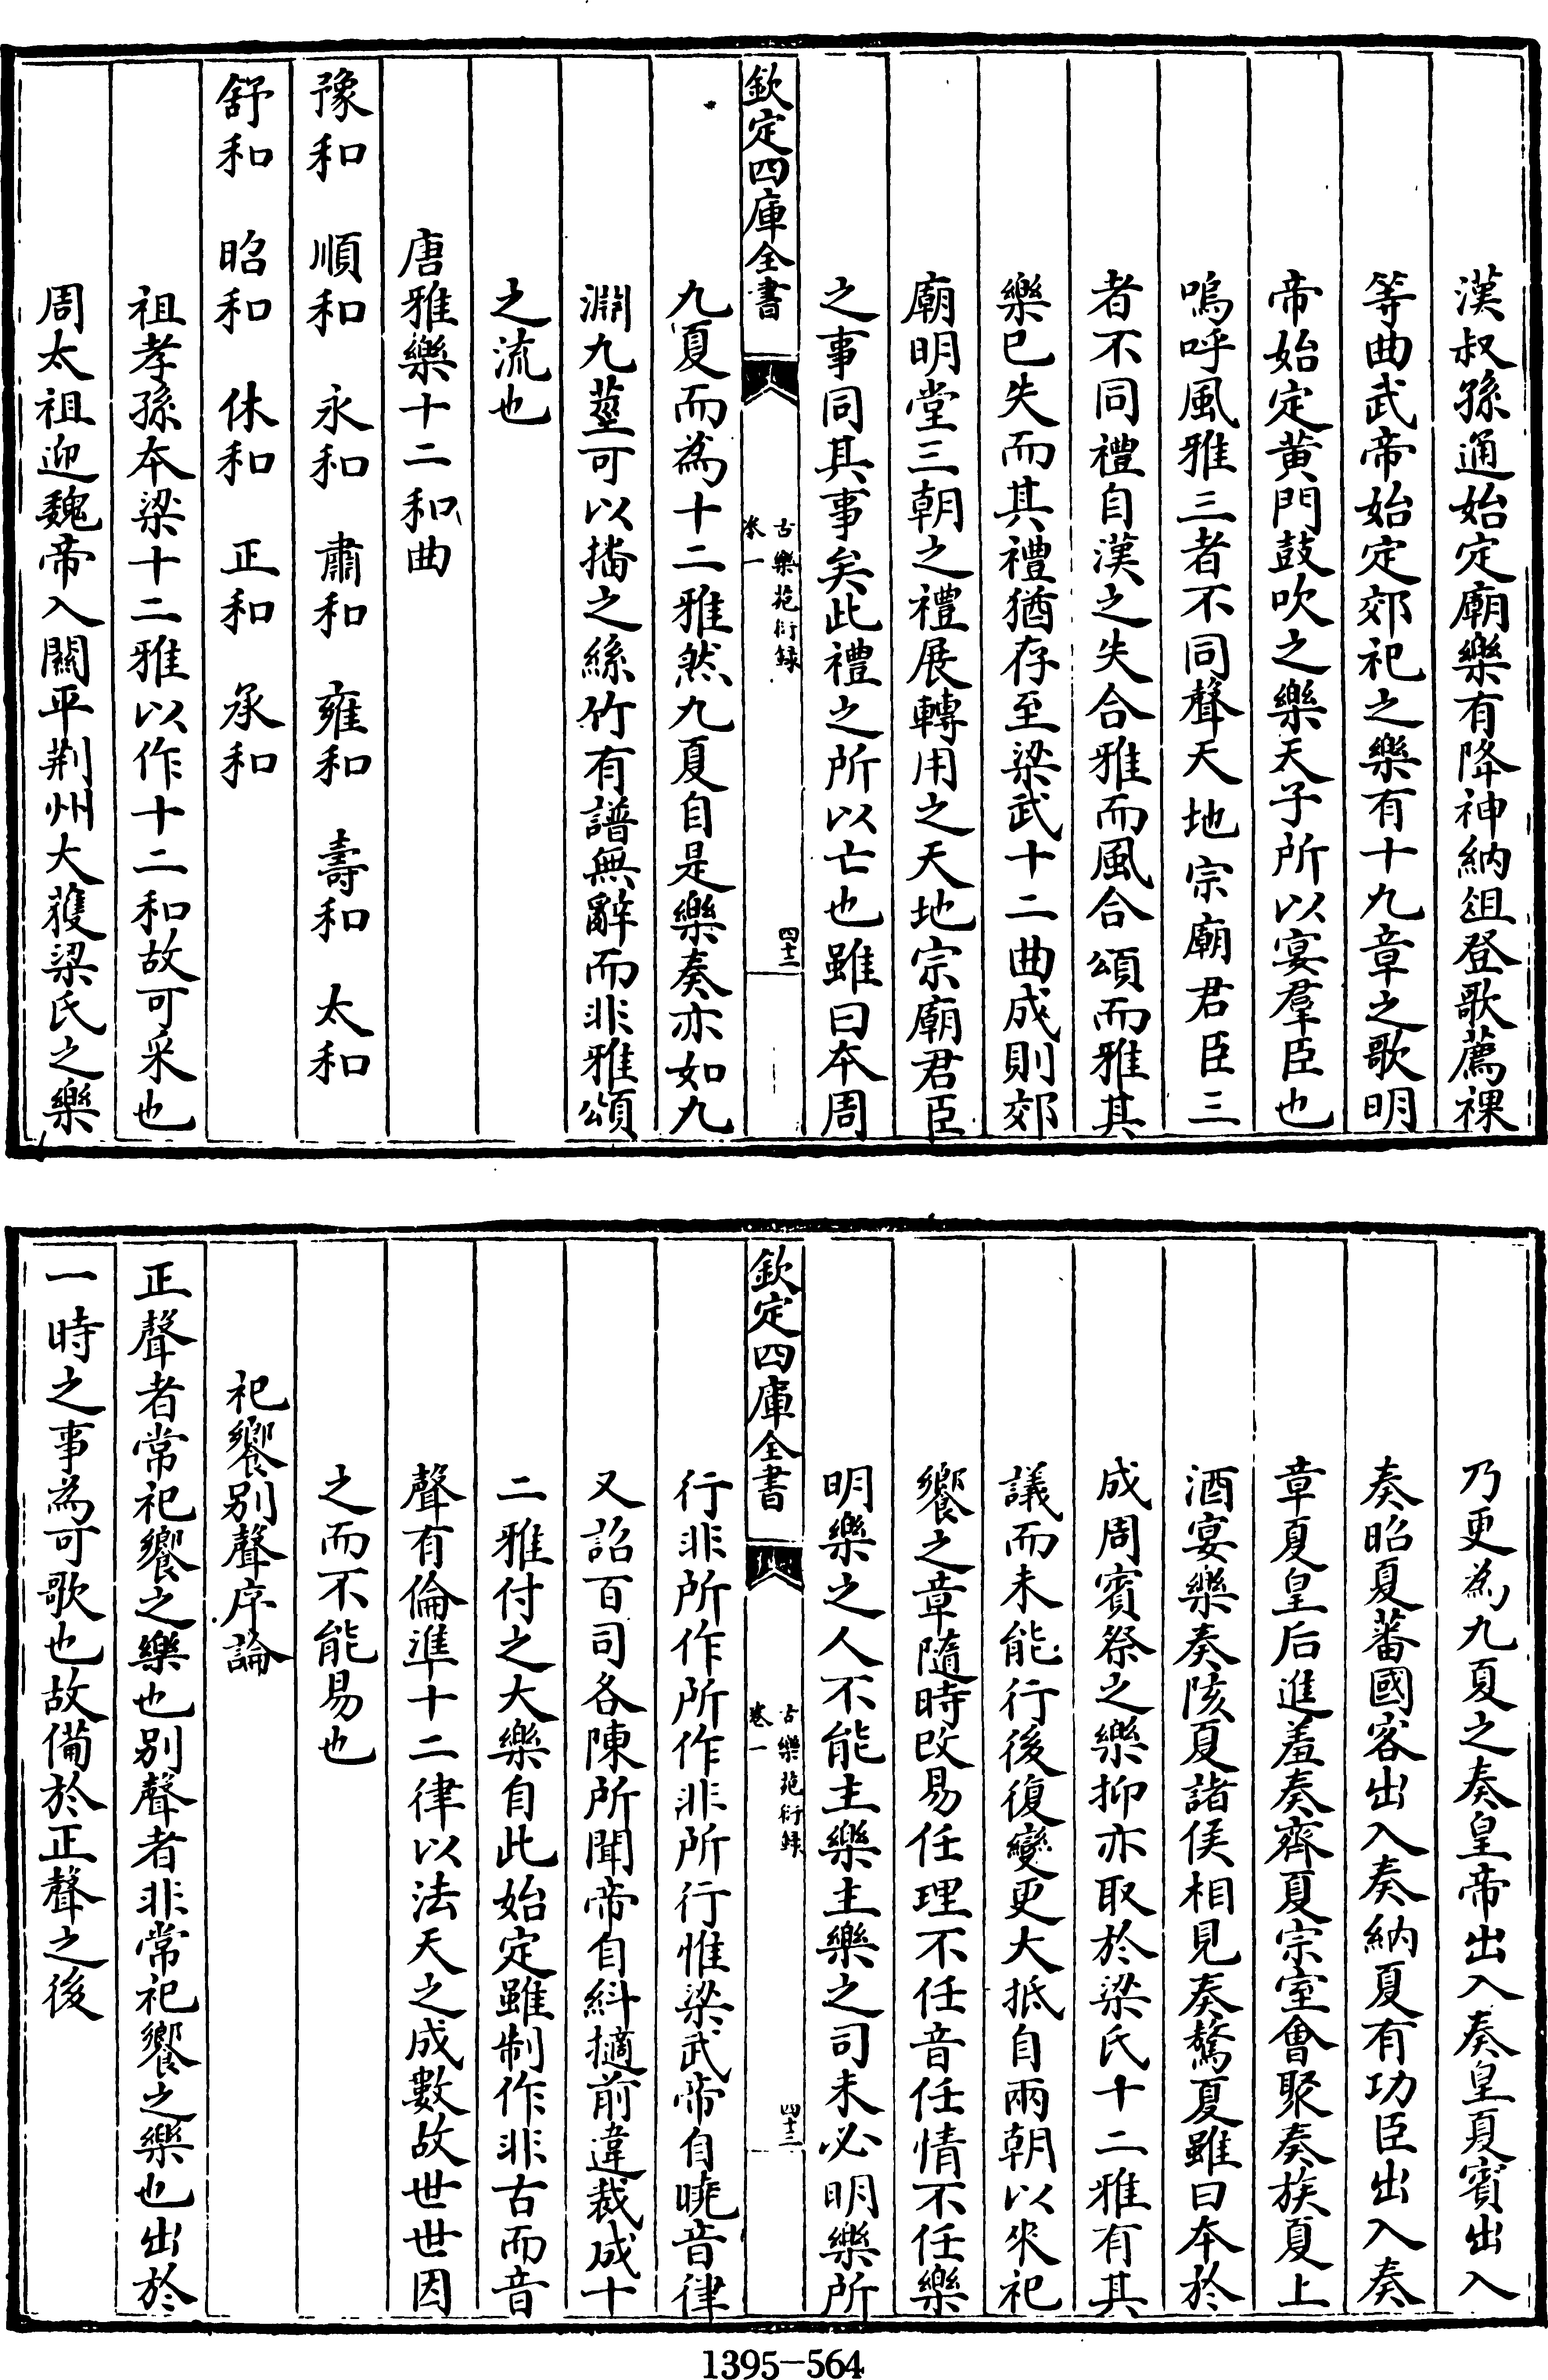 漢叔孫通始定廟樂有降神納俎登歌薦祼
等曲武帝始定郊祀之樂有十九章之歌明
帝始定黄門鼓吹之樂天子所以宴羣臣也
嗚呼風雅三者不同聲天地宗廟君臣三
者不同禮自漢之失合雅而風合頌而雅其
樂已失而其禮猶存至梁武十二曲成則郊
廟明堂三朝之禮展轉用之天地宗廟君臣
之事同其事矣此禮之所以亡也雖曰本周
欽定四庫全書
古樂苑衍録
卷一
四十二
九夏而為十二雅然九夏自是樂奏亦如九
淵九莖可以播之絲竹有譜無辭而非雅頌
之流也
唐雅樂十二和曲
豫和 順和 永和 肅和 雍和 壽和 太和
舒和 昭和 休和 正和 承和
祖孝孫本梁十二雅以作十二和故可采也
周太祖迎魏帝入關平荆州大獲梁氏之樂
乃更為九夏之奏皇帝出入奏皇夏賓出入
奏昭夏蕃國客出入奏納夏有功臣出入奏
章夏皇后進羞奏齊夏宗室會聚奏族夏上
酒宴樂奏陔夏諸侯相見奏驁夏雖曰本於
成周賓祭之樂抑亦取於梁氏十二雅有其
議而未能行後復變更大抵自兩朝以來祀
饗之章隨時改易任理不任音任情不任樂
明樂之人不能主樂主樂之司未必明樂所
欽定四庫全書
古樂苑衍録
卷一
四十三
行非所作所作非所行惟梁武帝自曉音律
又詔百司各陳所聞帝自糾擿前違裁成十
二雅付之大樂自此始定雖制作非古而音
聲有倫準十二律以法天之成數故世世因
之而不能易也
祀饗别聲序論
正聲者常祀饗之樂也别聲者非常祀饗之樂也出於
一時之事為可歌也故備於正聲之後
1395-564